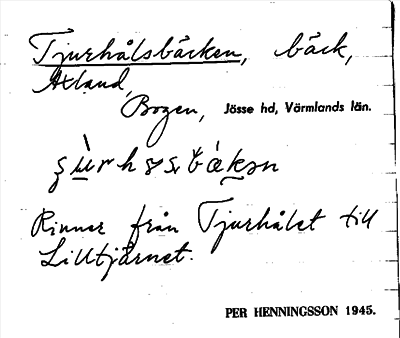 Tjurhålsbäcken, bäck,
Axland,
Bogen, Jösse hd, Värmlands län.
Rinner från Tjurhålet till
Lilltjärnet.
PER HENNINGSSON 1945.